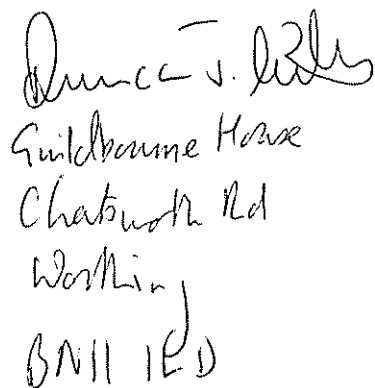 Duncan J.
Guildbourne House
Chatsworth Rd
Worthing
BN11 1ED